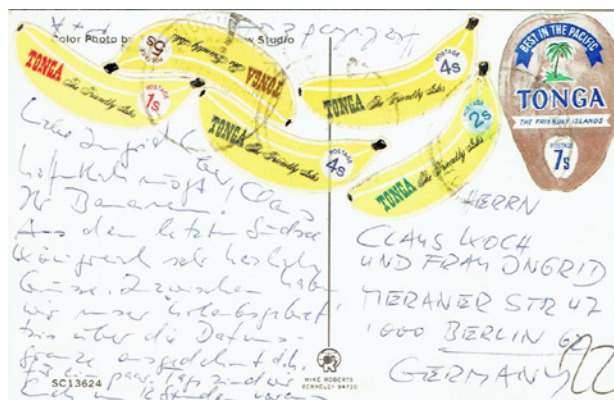 Color Photo by
Studio
TONGA The Friendly Isles POSTAGE 1s
TONGA The Friendly Isles POSTAGE 5s
TONGA The Friendly Isles POSTAGE 4s
TONGA The Friendly Isles POSTAGE 4s
TONGA The Friendly Isles POSTAGE 2s
BEST IN THE PACIFIC
TONGA
THE FRIENDLY ISLANDS
POSTAGE
7s
Liebe Ingrid,
lieber Claus
hoffentlich mögt
Ihr Bananen!
Aus dem letzten Südsee
Königreich sehr herzliche
Grüsse. Inzwischen haben
wir unser Urlaubsgebiet
bis über die Datums-
grenze ausgedehnt d.h.
für ein paar Tage sind wir
Euch um 12 Stunden voraus
HERRN
CLAUS KOCH
UND FRAU INGRID
MERANER STR 47
1000 BERLIN 62
GERMANY
SC13624
MIKE ROBERTS
BERKELEY 94710